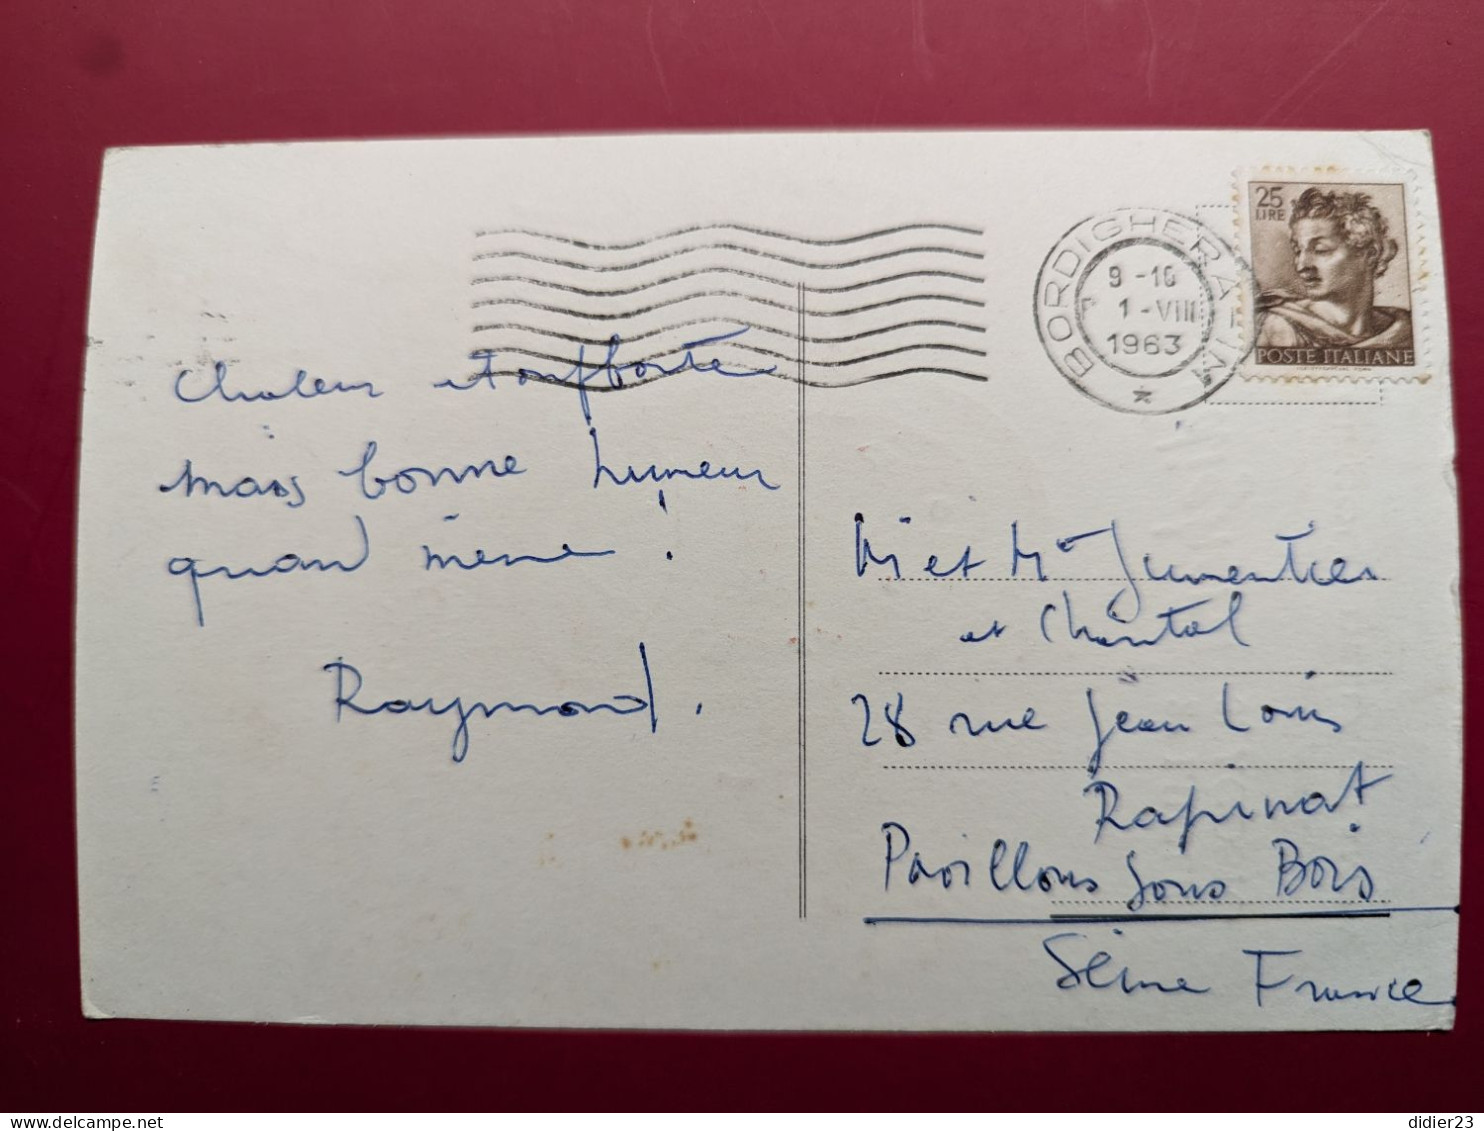 25
LIRE
POSTE ITALIANE
BORDIGHERA - IM
9 - 10
1 - VIII
1963
Chaleur étouffante
mais bonne humeur
quand même !
Raymond.
Mr et Mme Jumentier
et Chantal
28 rue Jean Louis
Rapinat
Pavillons sous Bois
Seine France
delcampe.net
didier23